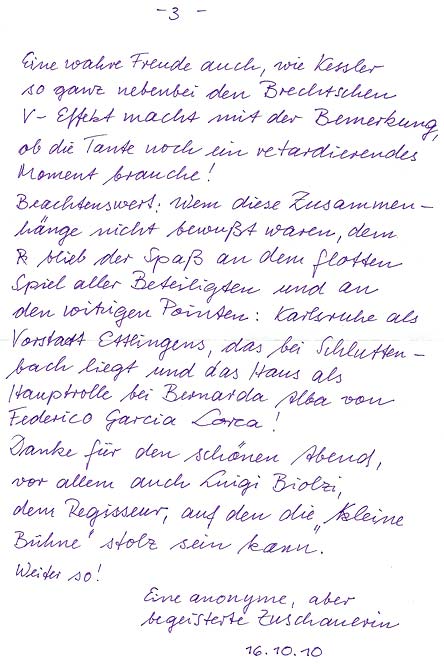 - 3 -
Eine wahre Freude auch, wie Kessler
so ganz nebenbei den Brechtschen
V-Effekt macht mit der Bemerkung,
ob die Tante noch ein retardierendes
Moment brauche!
Beachtenswert: Wem diese Zusammen-
hänge nicht bewußt waren, dem
blieb der Spaß an dem flotten
Spiel aller Beteiligten und an
den witzigen Pointen: Karlsruhe als
Vorstadt Ettlingens, das bei Schlutten-
bach liegt und das Haus als
Hauptrolle bei Bernarda Alba von
Federico Garcia Lorca!
Danke für den schönen Abend,
vor allem auch Luigi Biolzi,
dem Regisseur, auf den die „Kleine
Bühne" stolz sein kann.
Weiter so!
Eine anonyme, aber
begeisterte Zuschauerin
16.10.10